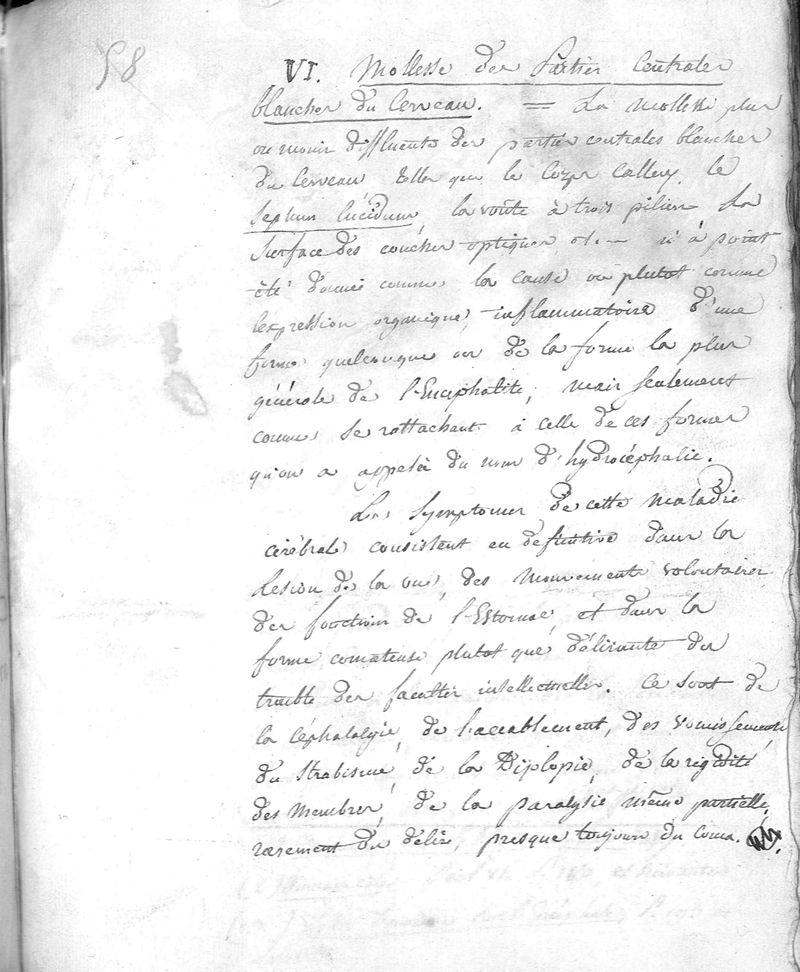 58
VI. Mollesse des Parties Centrales
blanches du Cerveau. = La mollesse plus
ou moins diffluente des parties centrales blanches
du Cerveau telles que le Corps Calleux, le
Septum Lucidum, la voûte à trois piliers la
Surface des couches optiques, n'a point
été donnée comme la cause ou plutot comme
l'expression organique, inflammatoire d'une
forme quelconque ou de la forme la plus
générale de l'Encéphalite, mais seulement
comme se rattachant à celle de ces formes
qu'on a appelé du nom d'hydrocéphalie.
Les Symptomes de cette maladie
cérébrale consistent en définitive dans la
Lésion de la vue, des mouvements volontaires
des fonctions de l'Estomac, et dans la
forme comateuse plutot que délirante des
trouble des facultés intellectuelles. Ce sont de
la céphalalgie, de l'accablement, des vomissements
du Strabisme, de la Diplopie, de la rigidité
des Membres, de la paralysie même partielle,
rarement du délire, presque toujours du Coma.